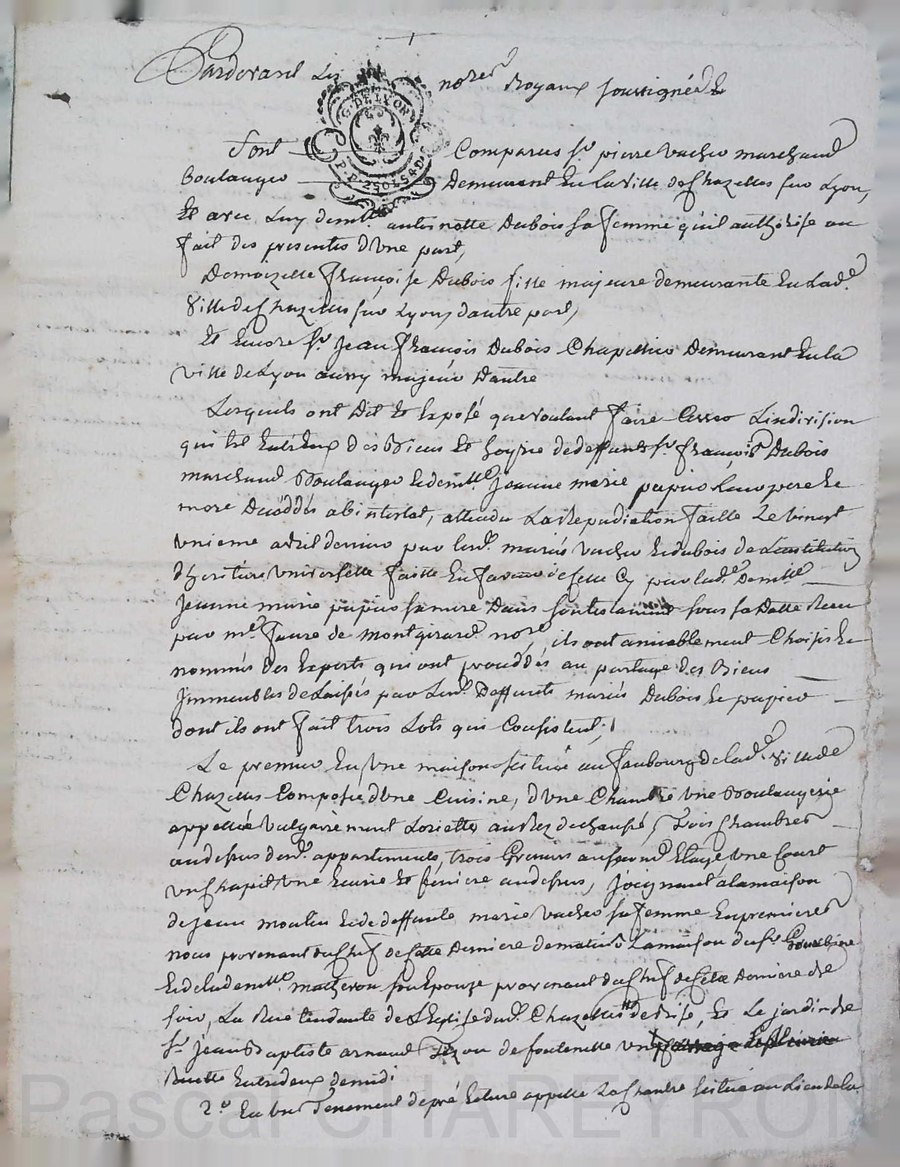 Pardevant Les no.res Royaux soussignés Et
G. DE LYON
P.P. 2 SOLS 4 D.
Sont Comparus Sr. pierre Vacher marchand
Boulanger Demeurant En la Ville de Chazelles sur Lyon,
Et avec Luy demlle. antoinette Dubois Sa femme qu'il authorise au
fait des presentes d'Une part,
Demoizelle françoise Dubois fille majeure demeurante En Lad.e
Ville de Chazelles sur Lyon, dautre part,
Et Encore Sr. Jean François Dubois Chapellier Demeurant En la
ville de Lyon aussy majeur Dautre
Lesquels ont Dit Et Exposé que voulant faire Cesser L'indivision
qui Est Entr'Eux des Biens Et hoyrie de deffunts Sr. François Dubois
marchand Boulanger Et demlle. Jeanne marie papier Leur pere Et
mere Decéddés abintestat, attendu La Repudiation faitte Le vingt
unieme avril dernier par Lesd. mariés Vacher Et dubois de L'institution
d'heritiere universelle faitte En faveur de Cette Cy par lad.e Demlle.
Jeanne marie papier Sa mere Dans Son testament Sous Sa Datte Receu
par me. faure de montgirard nore., ils ont amiablement Choisis Et
nommés des Experts qui ont proceddés au partage des Biens
Immeubles delaissés par Lesd. Deffunts mariés Dubois Et papier
dont ils ont fait trois Lots qui Consistent;
Le premier En Une maison Scituée au faubourg de lad.e Ville de
Chazelles Composée d'Une Cuisine, d'Une Chambre Une Boulangerie
appellée Vulgairement Loriette au Rez de chaussé, trois Chambres
au dessus desd. appartements, trois Greniers au second Etage Une Court
Un Chapit Une Ecurie Et feniere au dessus, Joignant a la maison
de jean moulin Et de deffunte marie Vacher Sa femme En premieres
nous provenant du Chef de Cette Derniere de matin, La maison du Sr.
Et de lademlle. matheron Son Epouze provenant du Chef de Cette Derniere de
soir, La Rue tendante de L'Eglise dud. Chazelles de Bize, Et Le jardin de
Sr. Jean Baptiste arnaud de fontenette
Ruette Entredeux de midi
2.o En Un Tenement de pré Enclure appellé La Scitué au Lieu de la
Pascal CHAREYRON